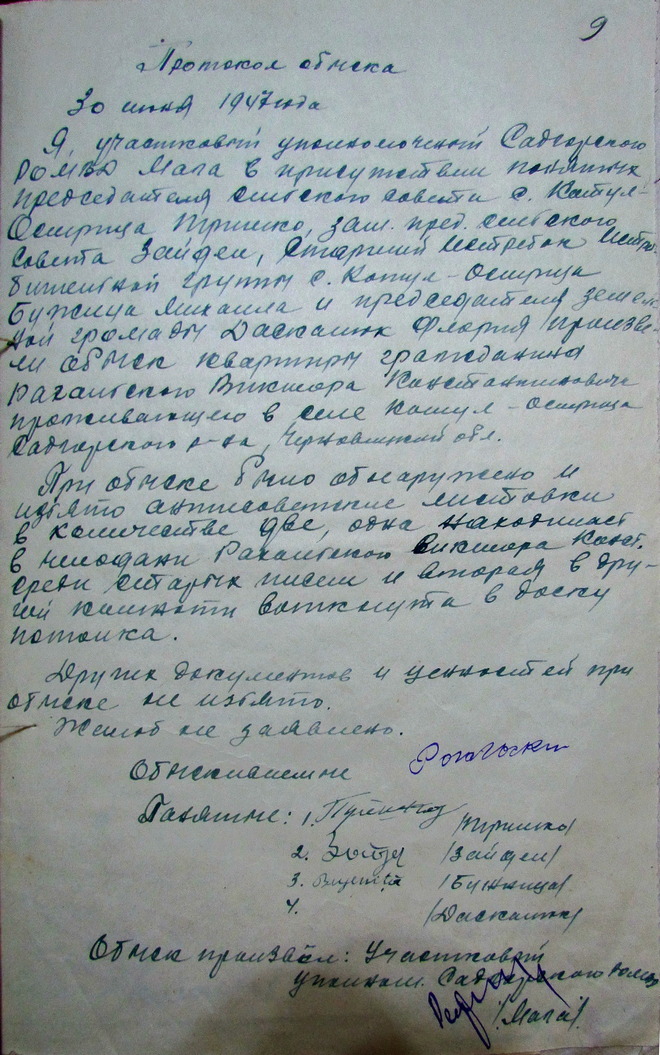 9
Протокол обыска
30 июня 1947 года
Я, участковый уполномоченный Садгорского
РОМВД Мага в присутствии понятых
председателя сельского совета с. Котул-
Острица Тришко, зам. пред. сельского
совета Зайфел, Старший Истребок Истре-
бительной группы с. Котул-Острица
Бужница Михаила и председателя земель-
ной громады Даскалюк Флория произве-
ли обыск квартиры гражданина
Рахальского Виктора Константиновича
проживающего в селе Котул-Острица
Садгорского р-на, Черновицкой обл.
При обыске было обнаружено и
изъято антисоветские листовки
в количестве две, одна находилась
в чемодани Рахальского Виктора Конст.
среди старых писем и вторая в дру-
гой комнати воткнута в доску
потолка.
Других документов и ценностей при
обыске не изъято.
Жалоб не заявлено.
Обыскиваемые
Понятые: 1. /Тришко/
2. /Зайфел/
3. /Бужница/
4. /Даскалюк/
Обыск произвёл: Участковый
уполном. Садгорского РОМВД
/Мага/